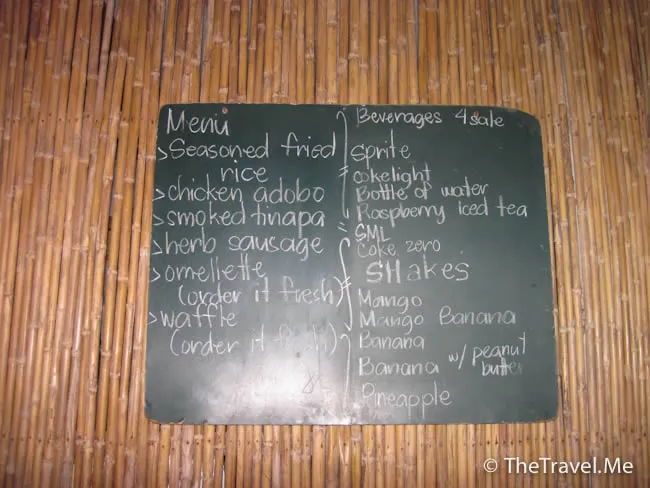 Menu
>Seasoned fried
rice
>chicken adobo
>smoked tinapa
>herb sausage
>omellette
(order it fresh)
>waffle
(order it fresh)
Beverages 4sale
Sprite
cokelight
Bottle of water
Raspberry iced tea
SML
Coke zero
SHakes
Mango
Mango Banana
Banana
Banana w/ peanut
butter
Pineapple
© TheTravel.Me